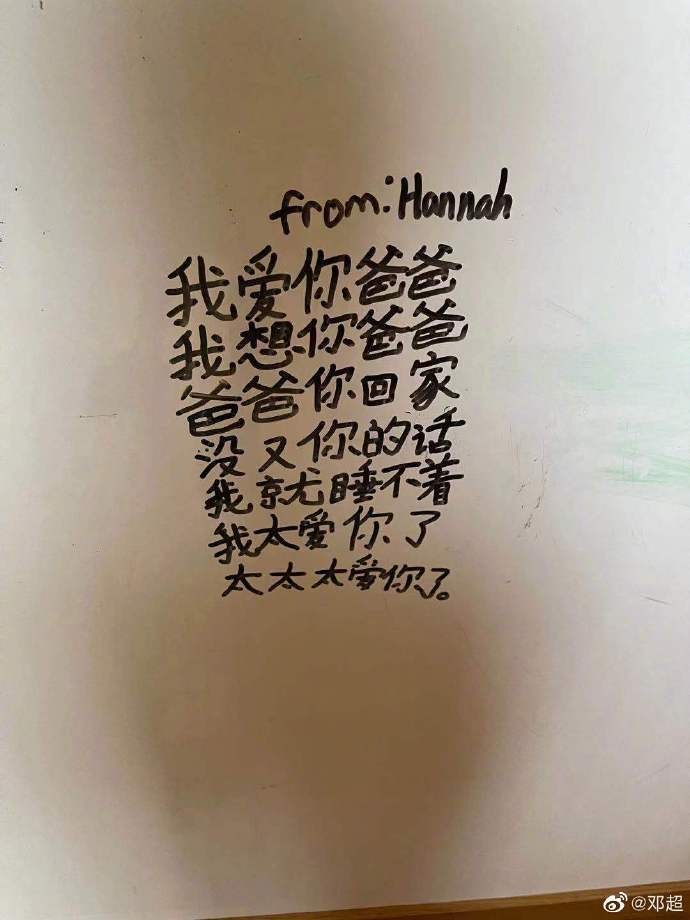 from: Hannah
我爱你爸爸
我想你爸爸
爸爸你回家
没又你的话
我就睡不着
我太爱你了
太太太爱你了。
@邓超